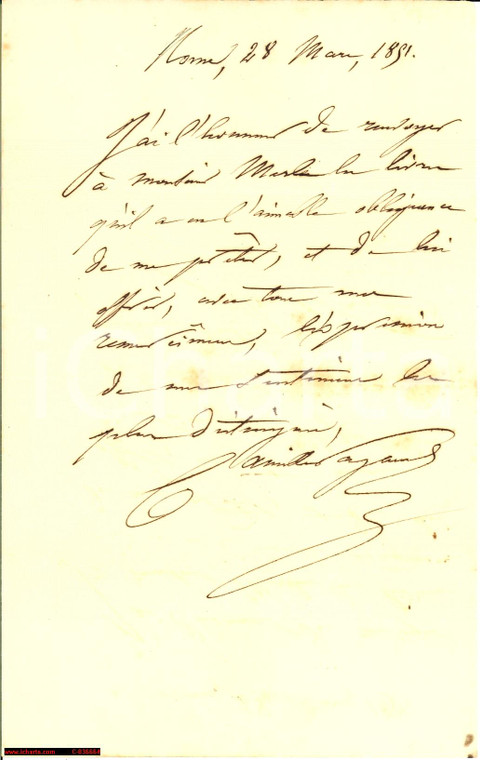 Rome, 28 Mars, 1851.
J'ai l'honneur de renvoyer
à monsieur Merle les livres
qu'il a eu l'aimable obligeance
de me prêter, et de lui
offrir, avec tous mes
remerciements, l'expression
de mes sentiments les
plus distingués,
Camille
www.icharta.com C-836664
iCharta